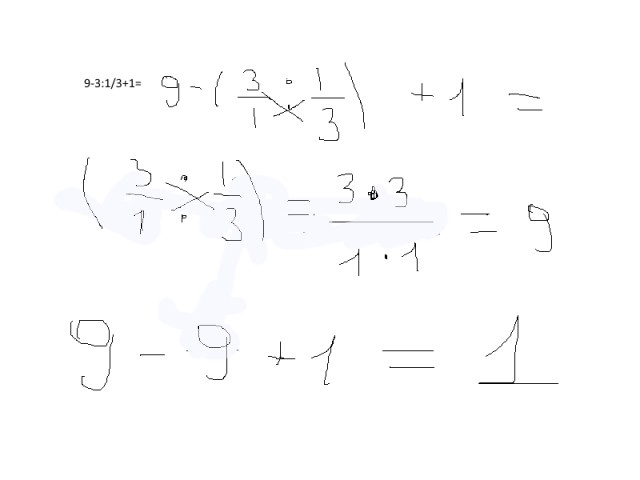 9-3:1/3+1= 9 - (3/1 : 1/3) + 1 =
(3/1 : 1/3) = 3·3/1·1 = 9
9 - 9 + 1 = 1